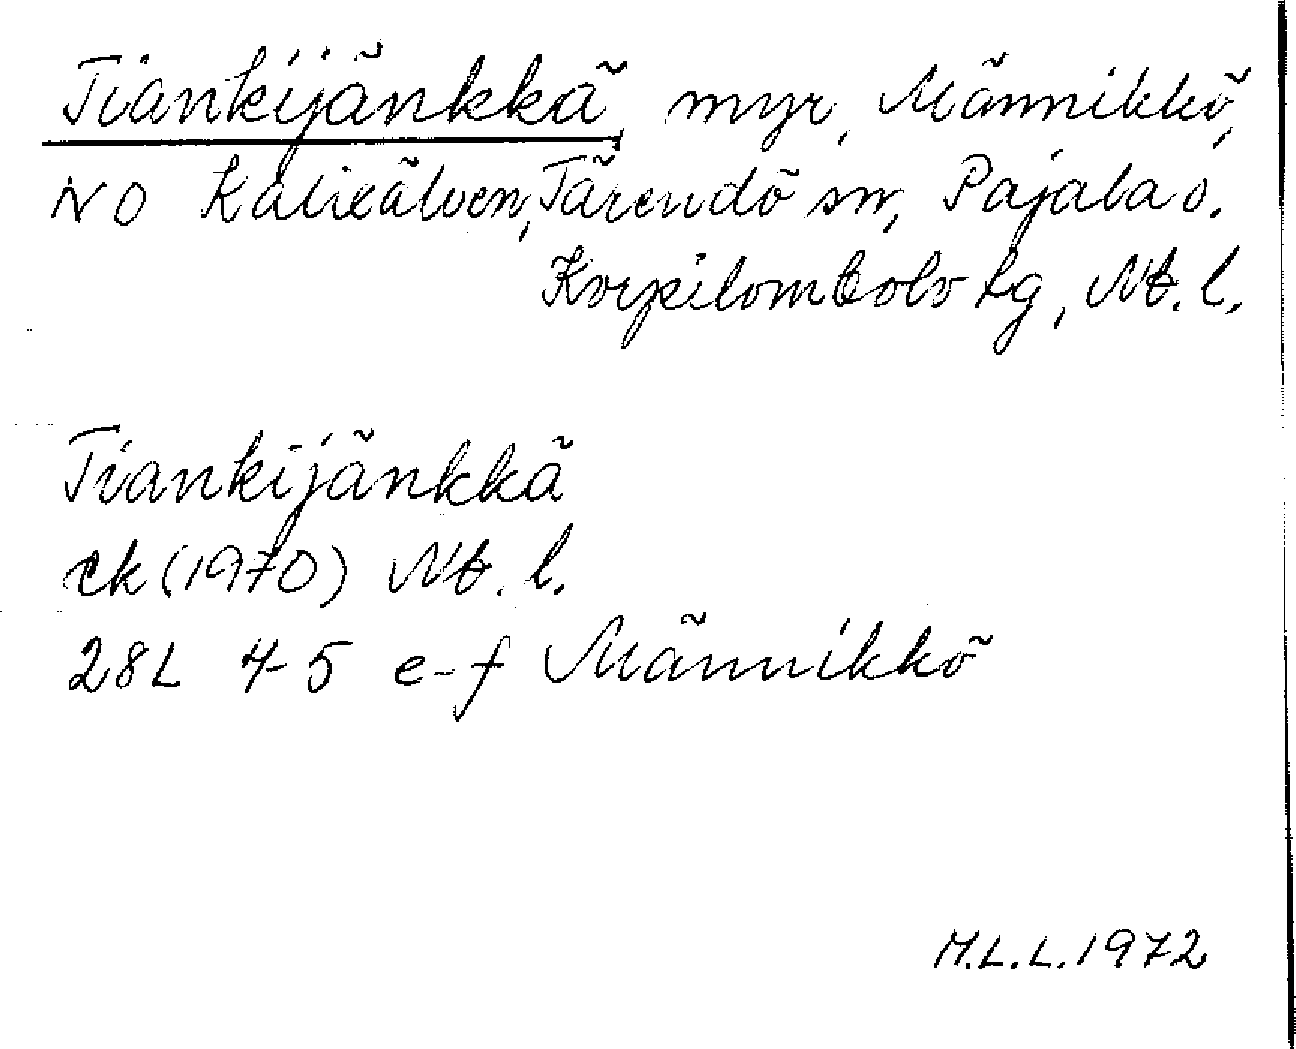 Tiankijänkkä, myr, Männikkö,
NO Kalixälven, Tärendö sn, Pajala o.
Korpilombolo tg, Nb. l.
Tiankijänkkä
ek (1970) Nb. l.
28L 4-5 e-f Männikkö
M.L.L. 1972